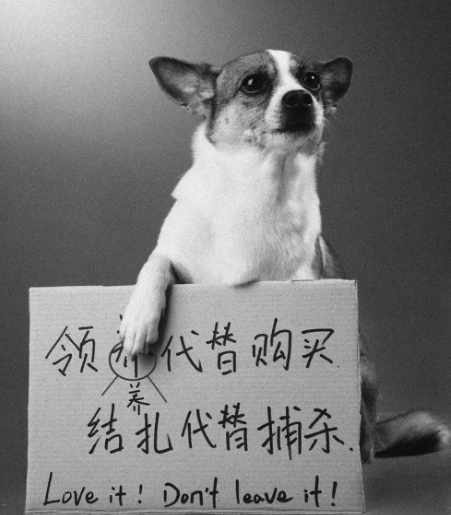 领养代替购买
养
结扎代替捕杀.
Love it! Don't leave it!